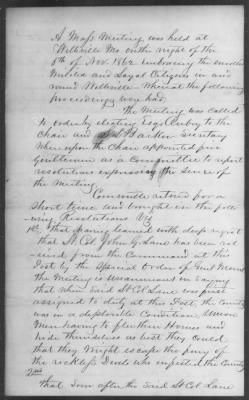 A Mass Meeting was held at
Wellsville Mo on the night of the
8th of Nov. 1862 embracing the enrolled
Militia and Loyal Citizens in and
around Wellsville Whereat the following
proceedings were had.
The Meeting was called
to order by electing Esqr to the
Chair and Barker Secretary
Whereupon the Chair appointed five
Gentlemen as a Committee to report
resolutions expressing the sense of
the Meeting.
Committee retired for a
Short time and brought in the follo
-wing Resolutions Viz
1st That having learned with deep regret
that Lt Col John G Lane has been rel
-ieved from the Command at this
Post by the Special Order of Genl
the Meeting is unanimous in saying
that when said Lt Col Lane was first
assigned to duty at this Post the County
was in a deplorable Condition Union
Men having to flee their Homes and
hide themselves as best they could
that they might escape the fury of
the reckless Devils who infested the County
2nd
That soon after the said Lt Col Lane